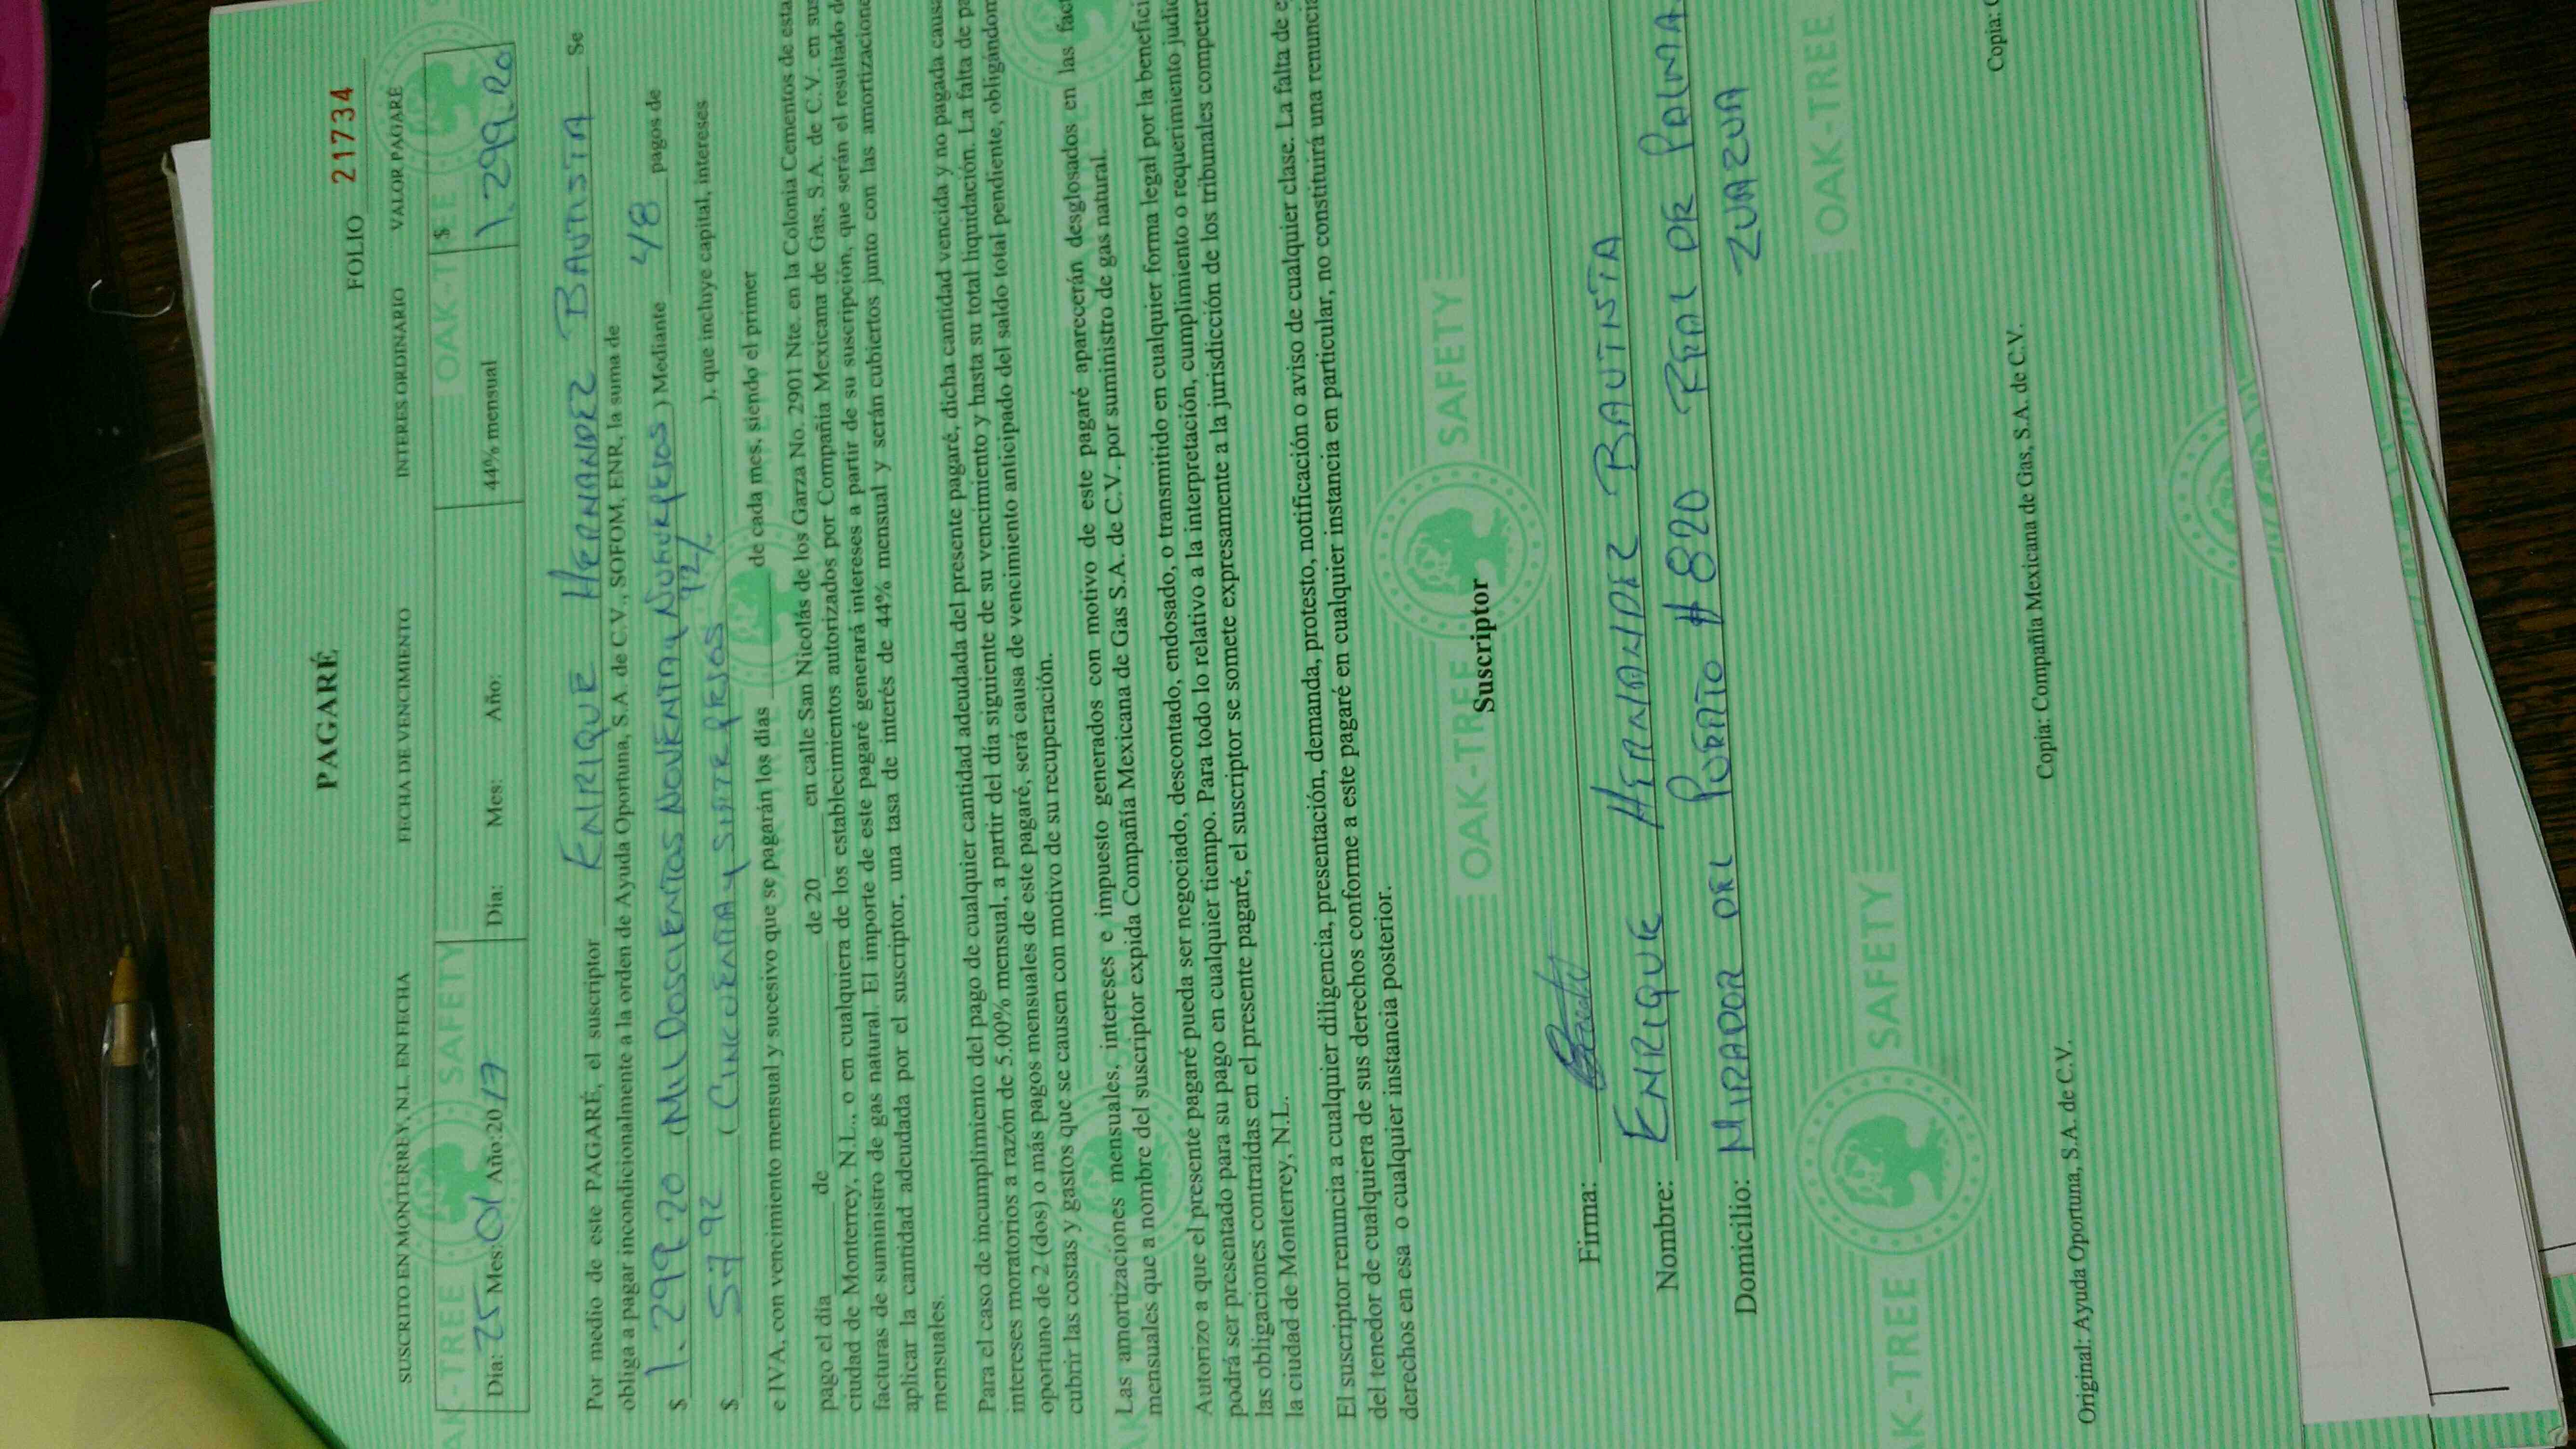 PAGARÉ
FOLIO 21734
SUSCRITO EN MONTERREY, N.L. EN FECHA FECHA DE VENCIMIENTO INTERES ORDINARIO VALOR PAGARÉ
Dia: 25 Mes: 01 Año:2017 Dia: Mes: Año: 44% mensual $ 1.299.20
Por medio de este PAGARÉ, el suscriptor ENRIQUE HERNANDEZ BAUTISTA Se
obliga a pagar incondicionalmente a la orden de Ayuda Oportuna, S.A. de C.V., SOFOM, ENR, la suma de
$ 1.299 20 (MIL DOSCIENTOS NOVENTA y NUEVE PESOS) Mediante 48 pagos de
$ 57 92 (CINCUENTA y SIETE PESOS 92/. ), que incluye capital, intereses
e IVA, con vencimiento mensual y sucesivo que se pagarán los días de cada mes, siendo el primer
pago el día de de 20 en calle San Nicolás de los Garza No. 2901 Nte. en la Colonia Cementos de esta
ciudad de Monterrey, N.L., o en cualquiera de los establecimientos autorizados por Compañía Mexicana de Gas, S.A. de C.V. en sus
facturas de suministro de gas natural. El importe de este pagaré generará intereses a partir de su suscripción, que serán el resultado de
aplicar la cantidad adeudada por el suscriptor, una tasa de interés de 44% mensual y serán cubiertos junto con las amortizaciones
mensuales.
Para el caso de incumplimiento del pago de cualquier cantidad adeudada del presente pagaré, dicha cantidad vencida y no pagada
intereses moratorios a razón de 5.00% mensual, a partir del día siguiente de su vencimiento y hasta su total liquidación. La falta de
oportuno de 2 (dos) o más pagos mensuales de este pagaré, será causa de vencimiento anticipado del saldo total pendiente,
cubrir las costas y gastos que se causen con motivo de su recuperación.
Las amortizaciones mensuales, intereses e impuesto generados con motivo de este pagaré aparecerán desglosados en las
mensuales que a nombre del suscriptor expida Compañía Mexicana de Gas S.A. de C.V. por suministro de gas natural.
Autorizo a que el presente pagaré pueda ser negociado, descontado, endosado, o transmitido en cualquier forma legal por la
podrá ser presentado para su pago en cualquier tiempo. Para todo lo relativo a la interpretación, cumplimiento o requerimiento
las obligaciones contraídas en el presente pagaré, el suscriptor se somete expresamente a la jurisdicción de los tribunales
la ciudad de Monterrey, N.L.
El suscriptor renuncia a cualquier diligencia, presentación, demanda, protesto, notificación o aviso de cualquier clase. La falta de
del tenedor de cualquiera de sus derechos conforme a este pagaré en cualquier instancia en particular, no constituirá una
derechos en esa o cualquier instancia posterior.
OAK-TREE SAFETY
Suscriptor
Firma:
Nombre: ENRIQUE HERNANDEZ BAUTISTA
Domicilio: MIRADOR DEL PUERTO # 820 REAL DE PALMA.
ZUAZUA
OAK-TREE SAFETY
OAK-TREE
Original: Ayuda Oportuna, S.A. de C.V. Copia: Compañía Mexicana de Gas, S.A. de C.V. Copia: